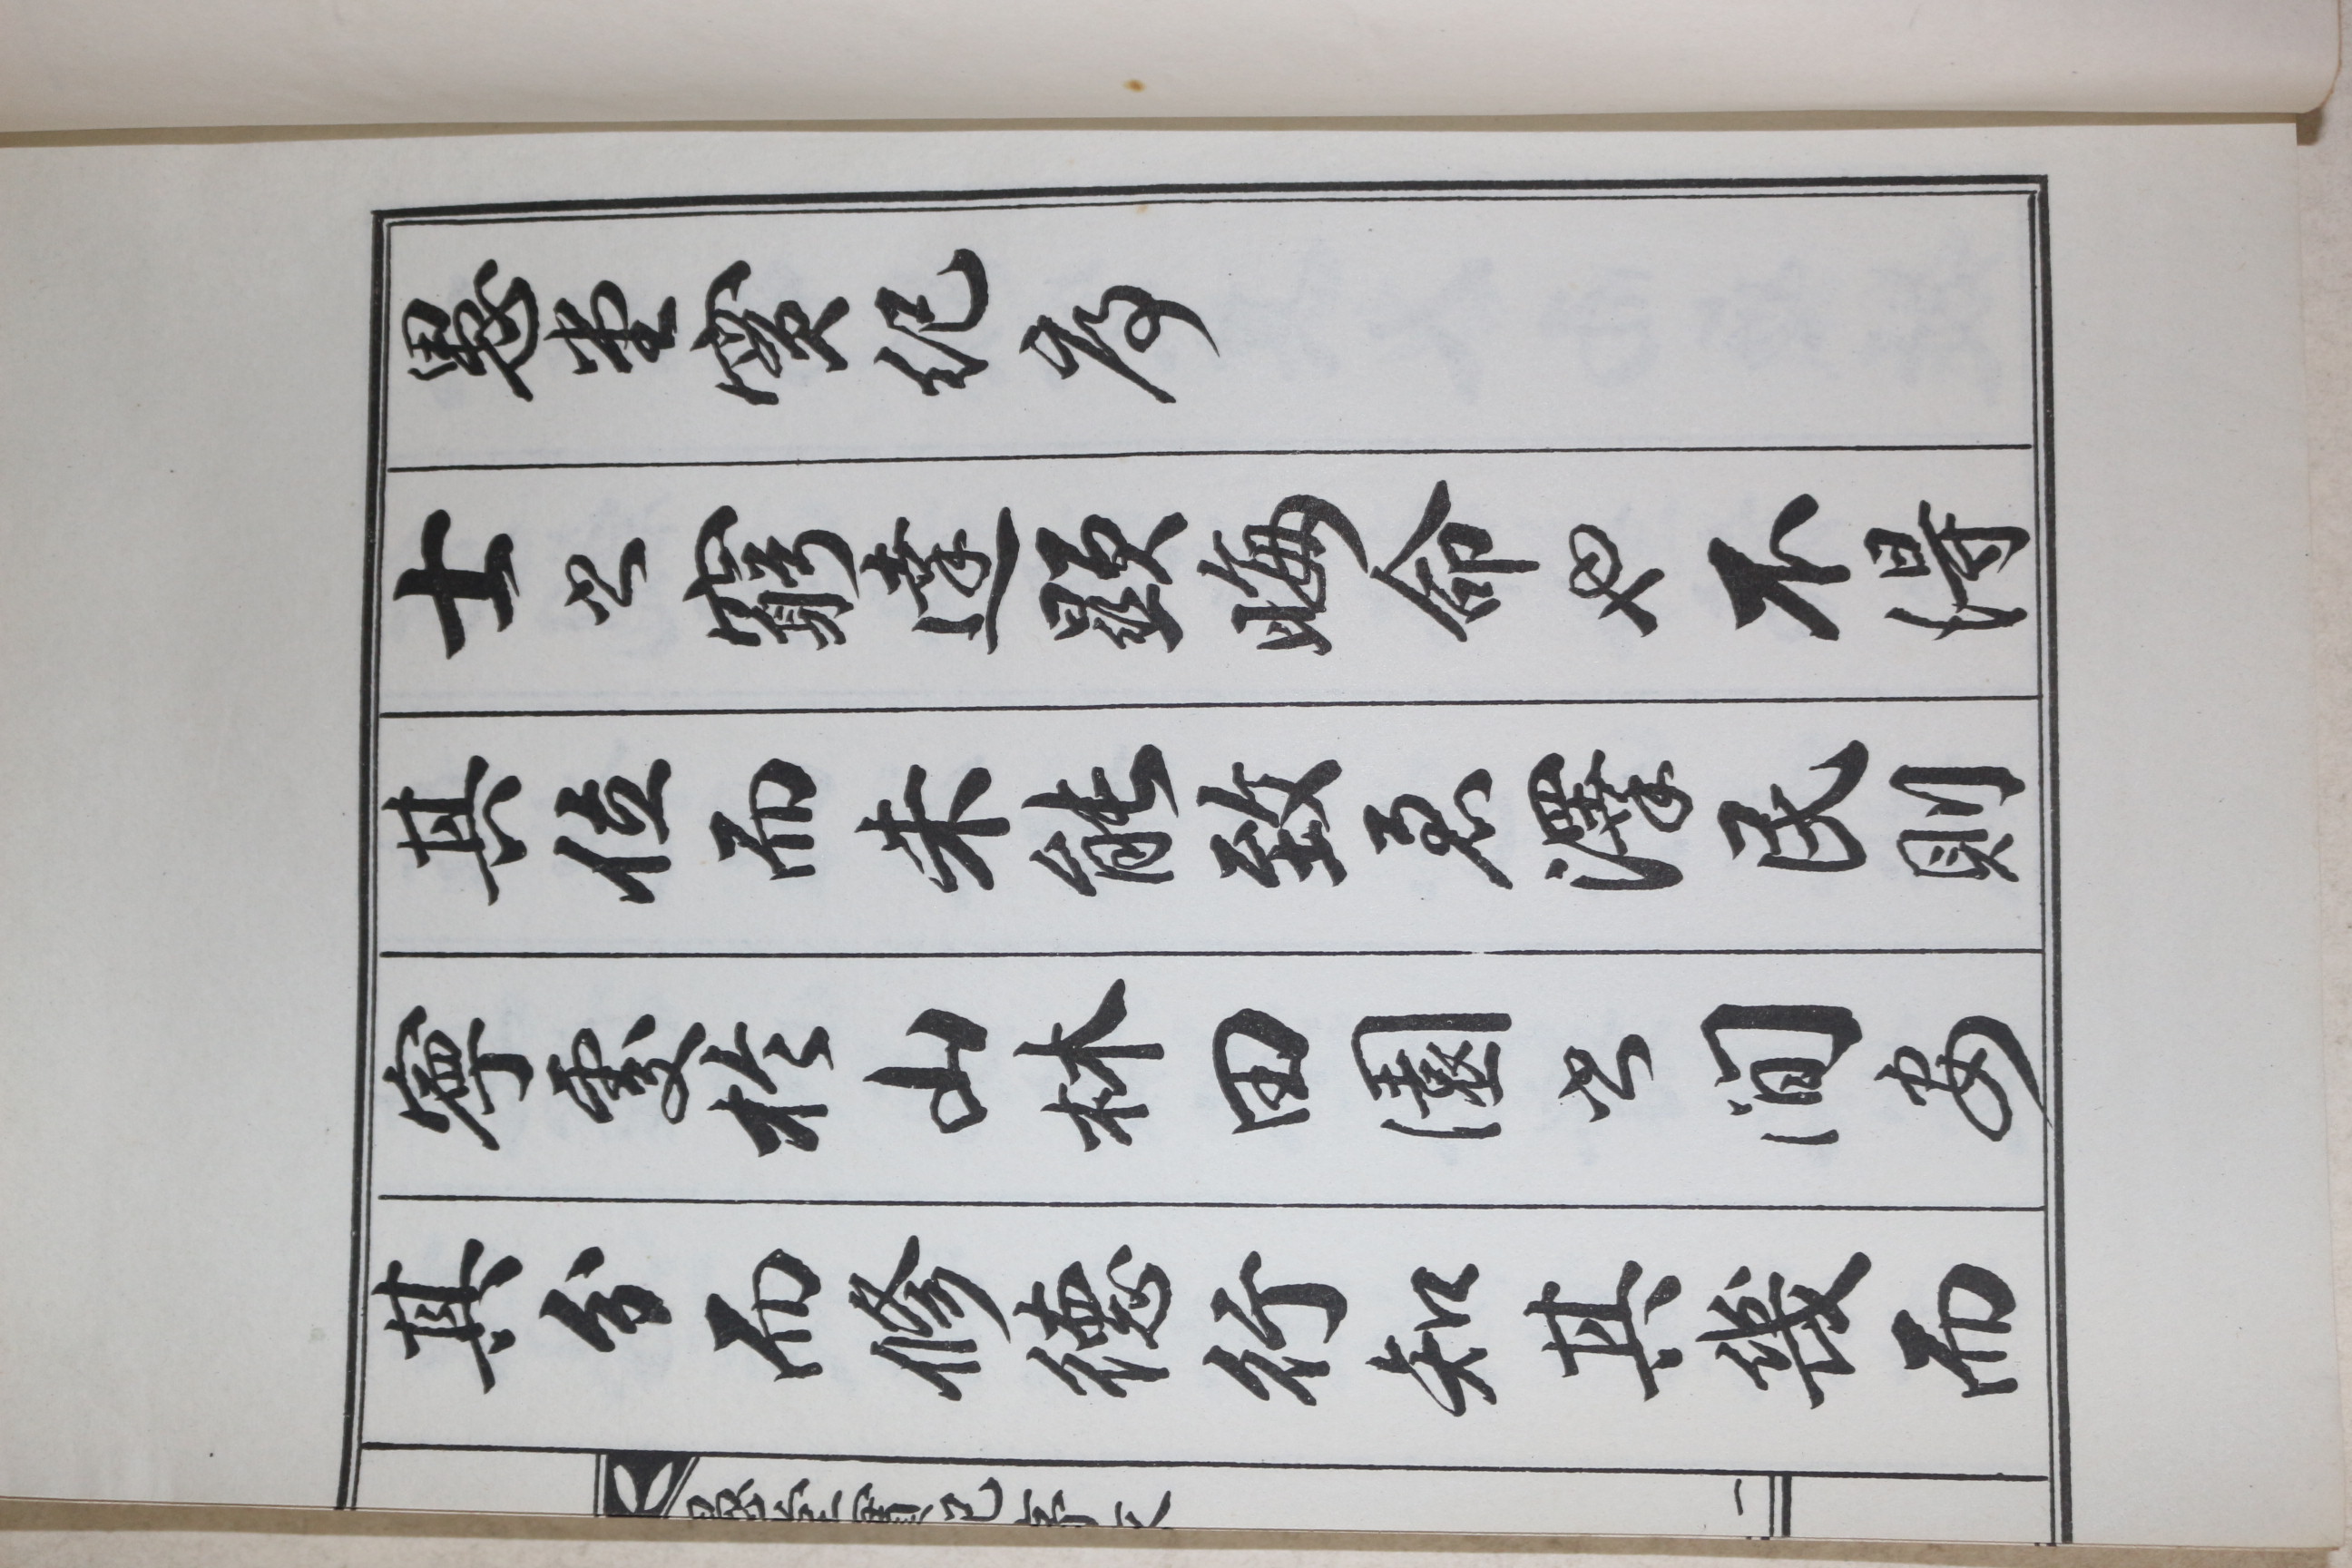 愚堂實紀序
士之窮達顯晦命也不得
其位而未能致君澤民則
寧處於山林田園之間安
其分而修德行知其幾而
一